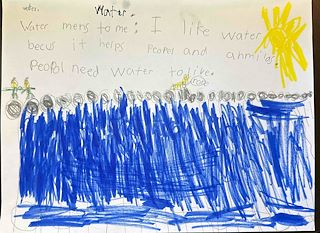 water.
Water.
Water mens to me: I like water
becus it helps Peopel and anmils
Peopol need Water to like.